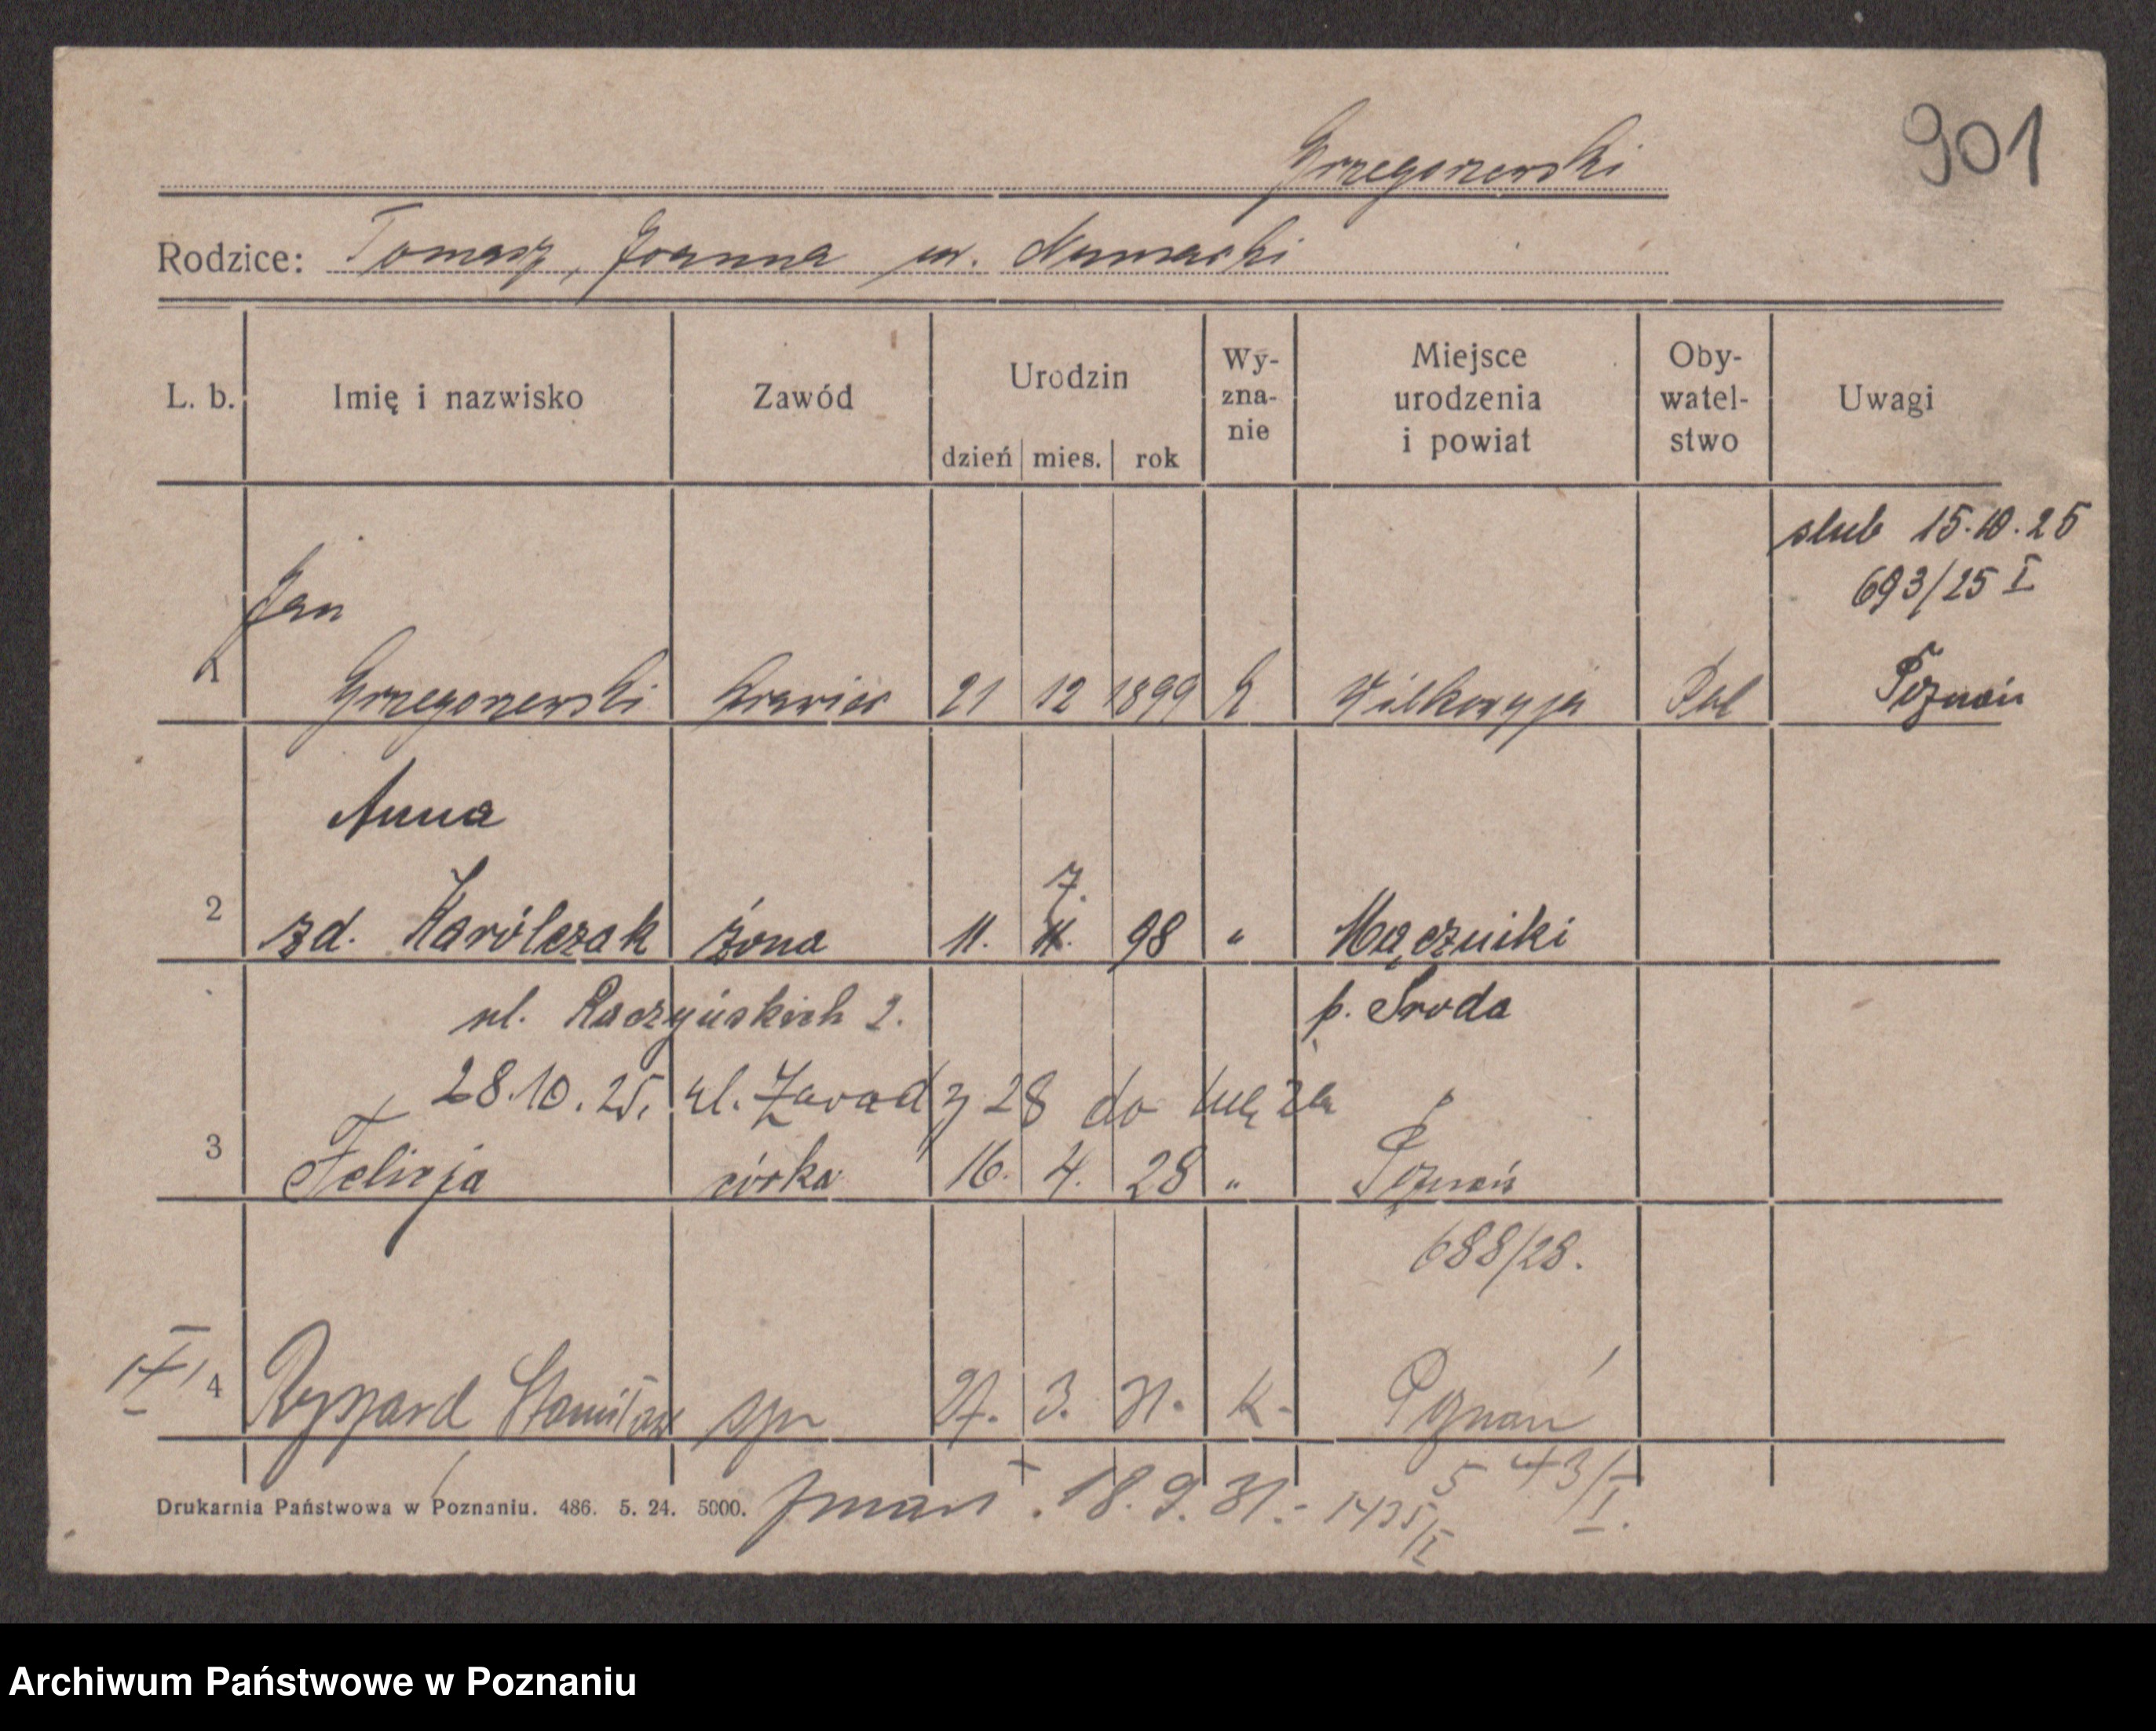 901
Grzegorzewski
Rodzice: Tomasz, Joanna ur.
L. b. Imię i nazwisko Zawód Urodzin dzień mies. rok Wy-zna-nie Miejsce urodzenia i powiat Oby-watel-stwo Uwagi
slub 15.10.25
693/25 I
Jan
1 Grzegorzewski krawiec 21 12 1899 K Wilkowyja Pol Poznań
Anna
7.
2 zd. Karólczak żona 11. 98 " Mączniki
ul. Raczyńskich 2. p. Środa
28.10.25. ul. Zawady 28 do męża
3 Felicja córka 16. 4. 28 " Poznań
688/28.
4 Ryszard Stanisław syn 27. 3. 31. K- Poznań
543/I.
Drukarnia Państwowa w Poznaniu. 486. 5. 24. 5000. zmarł. 18.9.31.- 1435/I
Archiwum Państwowe w Poznaniu